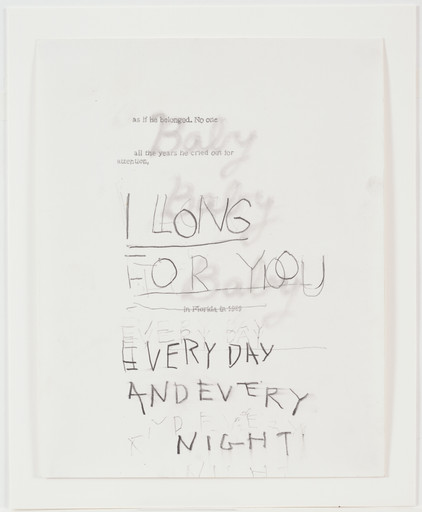 as if he belonged. No one
Baby
all the years he cried out for
attention,
Baby
I LONG
FOR YOU
Baby
in Florida in 1969
EVERY DAY
EVERY DAY
AND EVERY
NIGHT